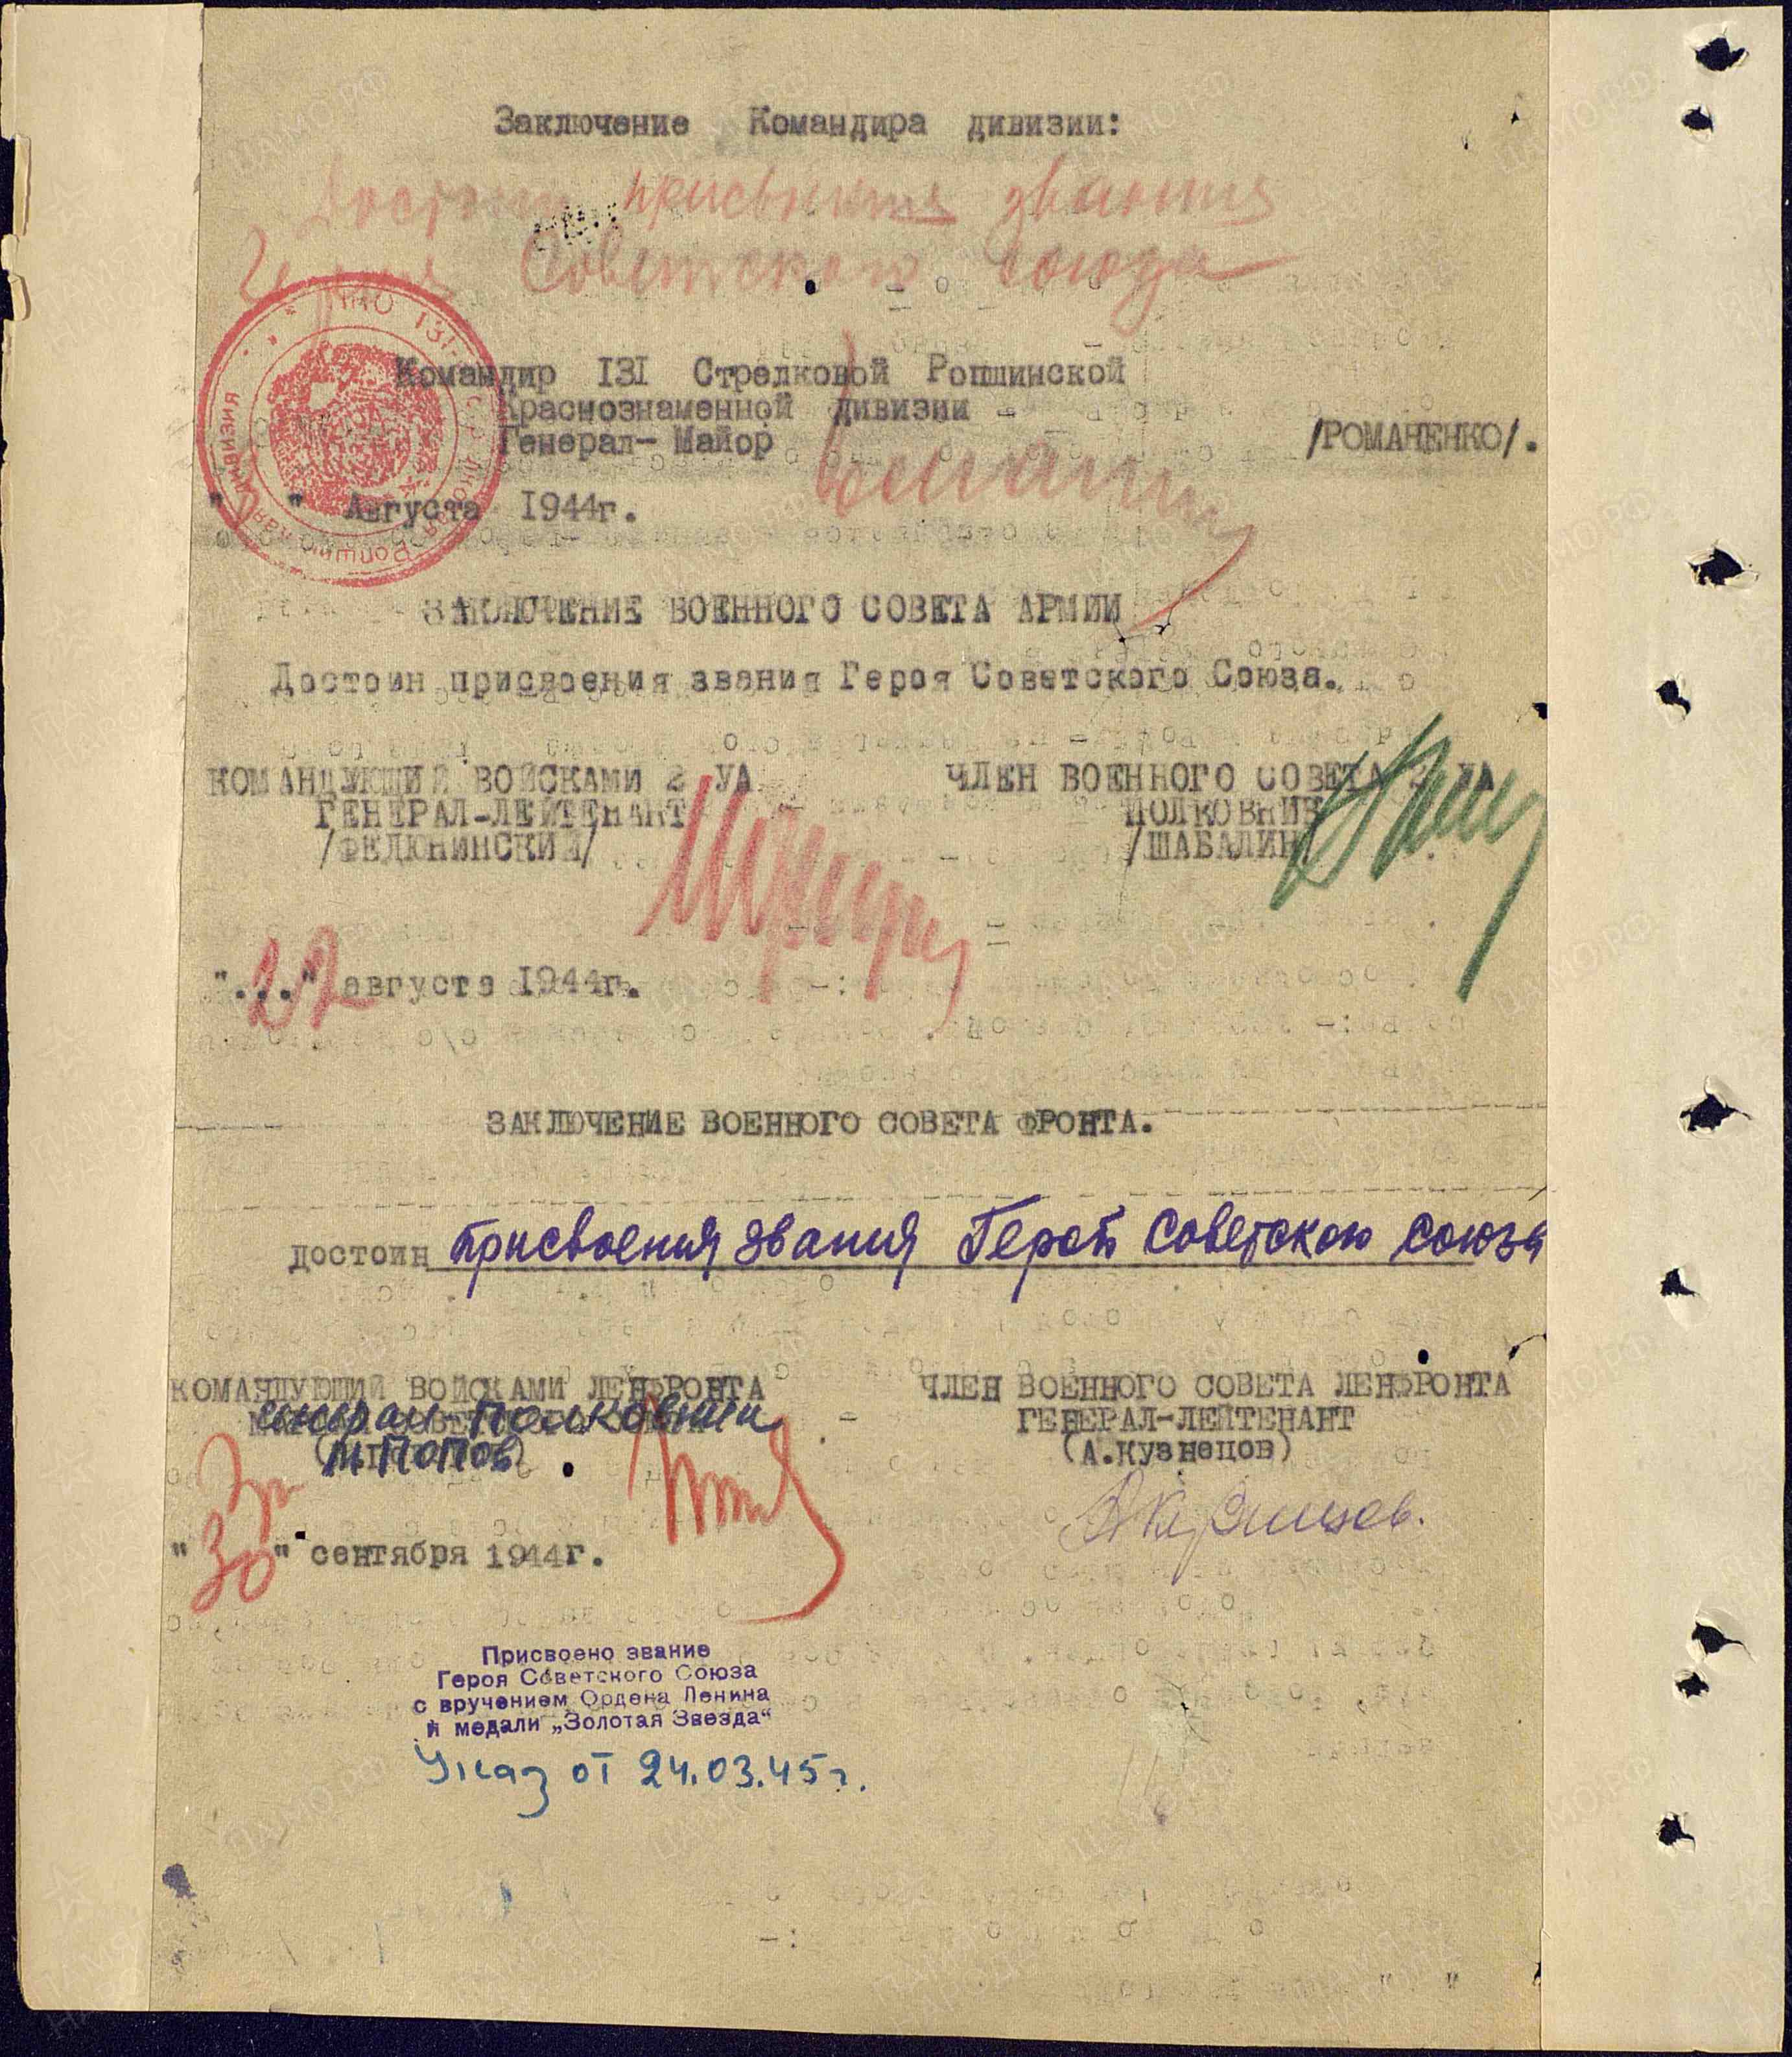 Заключение Командира дивизии:
Достоин присвоения звания
Героя Советского Союза
Командир 131 Стрелковой Ропшинской
Краснознаменной дивизии
Генерал-Майор /РОМАНЕНКО/.
" " Августа 1944г.
ЗАКЛЮЧЕНИЕ ВОЕННОГО СОВЕТА АРМИИ
Достоин присвоения звания Героя Советского Союза.
КОМАНДУЮЩИЙ ВОЙСКАМИ 2 УА ЧЛЕН ВОЕННОГО СОВЕТА 2 УА
ГЕНЕРАЛ-ЛЕЙТЕНАНТ ПОЛКОВНИК
/ФЕДЮНИНСКИЙ/ /ШАБАЛИН/
"22" августа 1944г.
ЗАКЛЮЧЕНИЕ ВОЕННОГО СОВЕТА ФРОНТА.
достоин присвоения звания Герой Советского Союза
КОМАНДУЮЩИЙ ВОЙСКАМИ ЛЕНФРОНТА ЧЛЕН ВОЕННОГО СОВЕТА ЛЕНФРОНТА
генерал-полковник ГЕНЕРАЛ-ЛЕЙТЕНАНТ
М. Попов (А.Кузнецов)
АКузнецов.
"30" сентября 1944г.
Присвоено звание
Героя Советского Союза
с вручением Ордена Ленина
и медали „Золотая Звезда“
Указ от 24.03.45г.